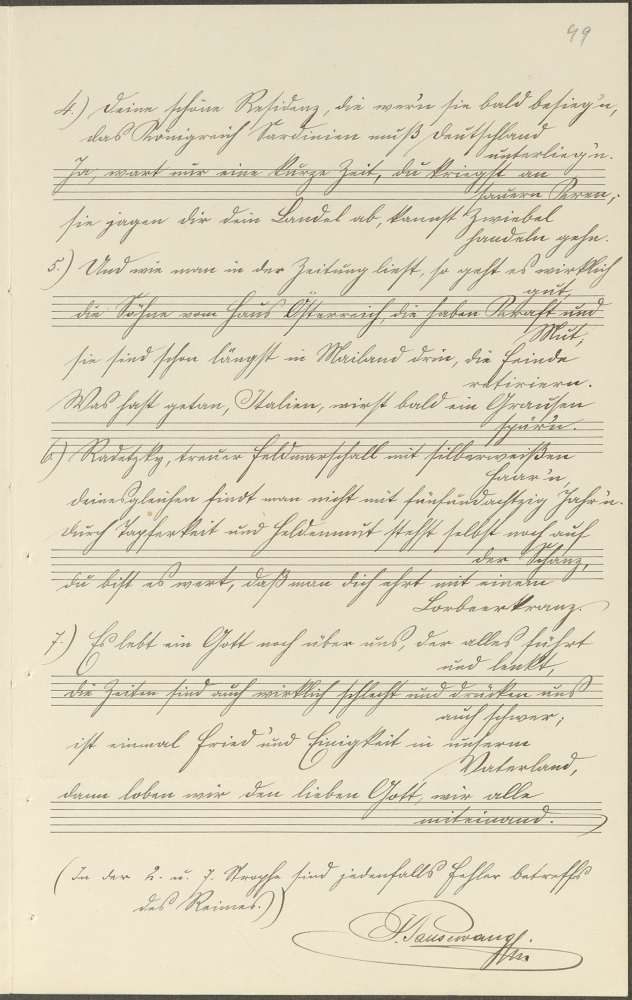 49
4.) Deine schöne Residenz, die wer'n sie bald besieg'n,
das Königreich Sardinien muß Deutschland
unterlieg'n.
Ja, wart nur eine kurze Zeit, du kriegst an
sauern Kern;
sie jagen dir dein Landel ab, kannst Zwiebel
handeln gehn.
5.) Und wie man in der Zeitung liest, so geht es wirklich
gut,
die Söhne vom Haus Österreich, die haben Kraft und
Mut,
sie sind schon längst in Mailand drin, die Feinde
retirieren.
Was hast getan, Italien, wirst bald ein Grausen
spür'n.
6.) Radetzky, treuer Feldmarschall mit silberweißen
Haar'n,
deinesgleichen findt man nicht mit fünfundachtzig Jahr'n.
Durch Tapferkeit und Heldenmut stehst selbst noch auf
der Schanz,
du bist es wert, daß man dich ehrt mit einem
Lorbeerkranz.
7.) Es lebt ein Gott noch über uns, der alles führt
und lenkt,
die Zeiten sind auch wirklich schlecht und drücken uns
auch schwer;
ist einmal Fried' und Einigkeit in unserm
Vaterland,
dann loben wir den lieben Gott, wir alle
miteinand.
(In der 2. u. 7. Strophe sind jedenfalls Fehler betreffs
des Reimes.)